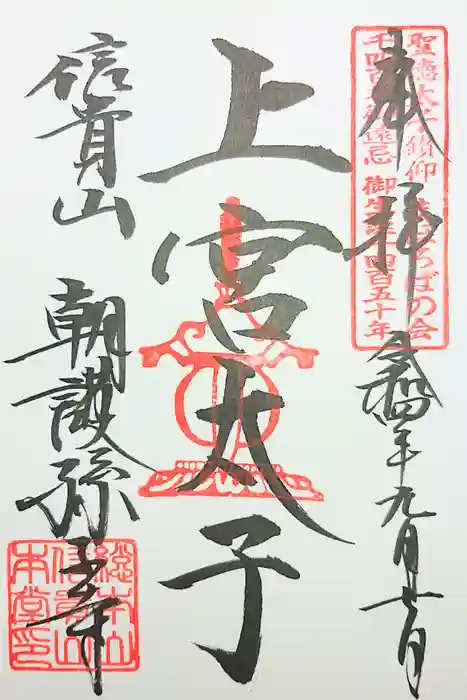 奉拝
令和四年九月廿日
聖徳太子鑽仰 ばの会
千四百年御遠忌 御生誕千四百五十年
上宮太子
信貴山
朝護孫子寺
総本山
信貴山
本堂印